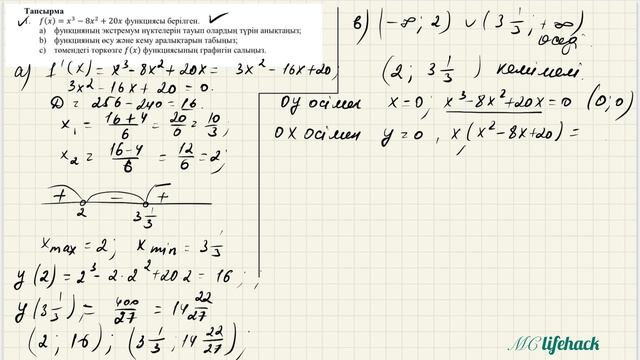 Тапсырма
1. f(x) = x³ − 8x² + 20x функциясы берілген.
a) функцияның экстремум нүктелерін тауып олардың түрін анықтаңыз;
b) функцияның өсу және кему аралықтарын табыңыз;
c) төмендегі торкөзге f(x) функциясының графигін салыңыз.
а) f'(x) = x³ − 8x² + 20x = 3x² − 16x + 20;
3x² − 16x + 20 = 0.
D = 256 − 240 = 16.
x₁ = (16+4)/6 = 20/6 = 10/3;
x₂ = (16−4)/6 = 12/6 = 2;
+ − +
2 3 1/3
x max = 2; x min = 3 1/3
y(2) = 2³ − 2·2² + 20·2 = 16;
y(3 1/3) = 400/27 = 14 22/27
(2; 16); (3 1/3; 14 22/27);
в) (−∞; 2) ∪ (3 1/3; +∞)
өседі
(2; 3 1/3) кемімелі
0y осімен x=0; x³−8x²+20x=0 (0;0)
0X осімен y=0, x(x²−8x+20)=
;
MC lifehack